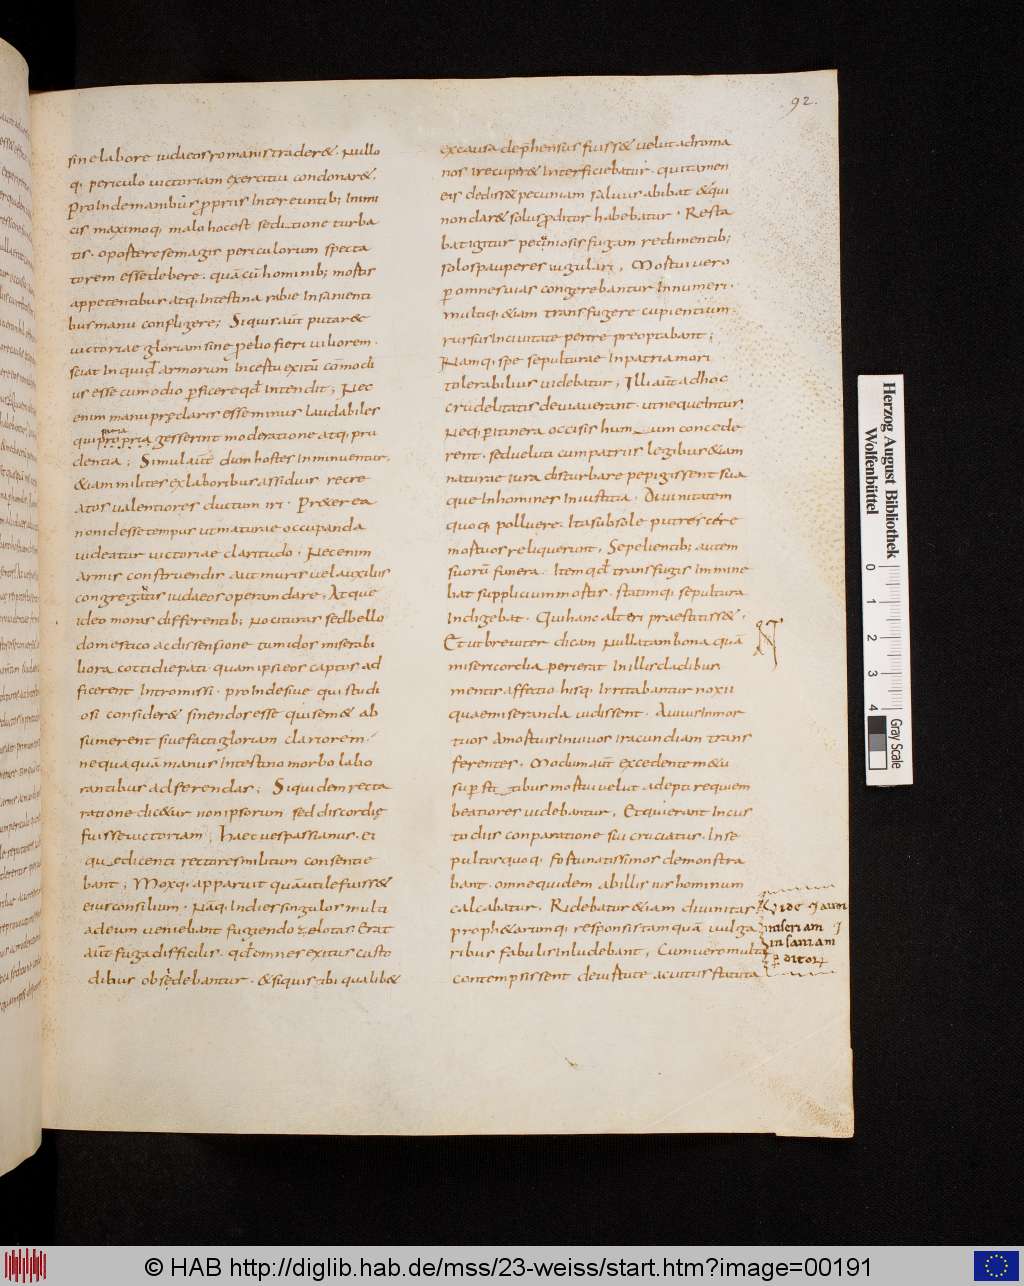 92.
sine labore iudaeos romanis trader&. Nullo
q; periculo uictoriam exercitui condonar&.
Proinde manibus propriis Intereuntib; Inimi
cis maximoq; malo hoc est seditione turba
tis. oportere se magis periculorum specta
torem esse debere. quā cū hominib; mortis
appetentibus atq; Intestina rabie Insanienti
bus manu confligere; Siquis aūt putar&
uictoriae gloriam sine proelio fieri uiliorem.
sciat Inquid armorum Incestu exitū cōmodi
us esse cum odio perficere qd Intendit; Nec
enim manu preclaris esse minus laudabiles
qui propria gesserint moderatione atq; pru
dentia; Simul aūt dum hostes Inminuentur.
&iam milites ex laboribus assiduis recre
atos ualentiores ducturum. Preterea
non id esse tempus ut maturae occupanda
uideatur uictoriae claritudo. Nec enim
armis construendis aut muris uel auxiliis
congregatis iudaeos operam dare. Atque
ideo moras differentib; nocituras sed bello
domestico ac dissensione tumidos miserabi
liora cottidie pati quam ipsi eos captos ad
ficerent Intromissi. proinde siue qui studi
osi consider& sinendos esse qui sem& ab
sumerent siue facti gloriam clariorem.
nequaquā manus Intestino morbo labo
rantibus adferendas; Siquidem recta
ratione dic&ur non ipsorum sed discordię
fuisse uictoriam; Haec uespasianus. ei
que dicenti rectores militum consentie
bant; Moxq; apparuit quā utile fuiss&
eius consilium. Nāq; Indies singulos multi
ad eum ueniebant fugiendo zelotas Erat
aūt fuga difficilis. qd omnes exitus custo
dibus obsedebantur. &siquis ibi qualib&
ex causa dephensus fuiss& uelut ad roma
nos irecuper& Interficiebatur. qui tamen
eis dediss& pecuniam saluus abibat &qui
non dar& solus proditor habebatur. Resta
bat igitur pecuniosis fugam redimentib;
solos pauperes iugulari. Mortui uero
per omnes uias congerebantur Innumeri.
multiq; &iam transfugere cupientium.
rursus In ciuitate perire preoptabant;
Namq; spe sepulturae In patria mori
tolerabilius uidebatur; Illi aūt ad hoc
crudelitatis deuauerant. ut neque Intus
Neq; per itinera occisis humum concede
rent. sed ueluti cum patriis legibus &iam
naturae iura disturbare pepigissent sua
que In homines Iniustitia. Diuinitatem
quoq; polluere. Ita sub sole putrescere
mortuos reliquerunt, Sepelientib; autem
suorū funera. Item qd transfugis Immine
bat supplicium mortis. statimq; sepultura
Indigebat. Qui hanc alteri praestitiss&.
Et ut breuiter dicam Nulla tam bona quā
misericordia perierat In illis cladibus
mentis affectio hisq; Irritabantur noxii
quae miseranda uidissent. A uiuis In mor
tuos A mortuis In uiuos iracundiam trans
ferentes. Modum aūt excedente m&u
superstitibus mortui uelut adepti requiem
beatiores uidebantur. Et quierant Incus
todiis conparatione sui cruciatus. Inse
pultos quoq; fortunatissimos demonstra
bant. omne quidem ab illis ius hominum
calcabatur. Ridebatur &iam diuinitas
proph&arumq; responsis tamquā uulga
ribus fabulis Inludebant, Cum uero multa
contempsissent de uirtute ac uitiis statuta
miseriam
insaniam
Herzog August Bibliothek
Wolfenbüttel
0 1 2 3 4
Gray Scale
© HAB http://diglib.hab.de/mss/23-weiss/start.htm?image=00191